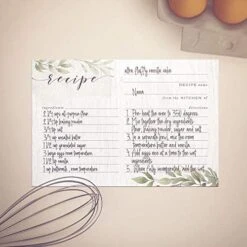 ultra fluffy vanilla cake
recipe
RECIPE name
Nana
from the KITCHEN of
ingredients
directions
2 1/4 cups all-purpose flour
2 1/4 tsp baking powder
3/4 tsp salt
3/4 cup
2 1/4 tsp vanilla
3 large eggs room temperature
1 cup buttermilk, room temperature
1. Pre-heat the oven to 350 degrees
2. the dry ingredients
flour, baking powder, sugar and salt
3. In a separate bowl, mix the room
temperature butter and vanilla
4. Add eggs one at a time to the wet
ingredients
5. When fully incorporated, add the wet